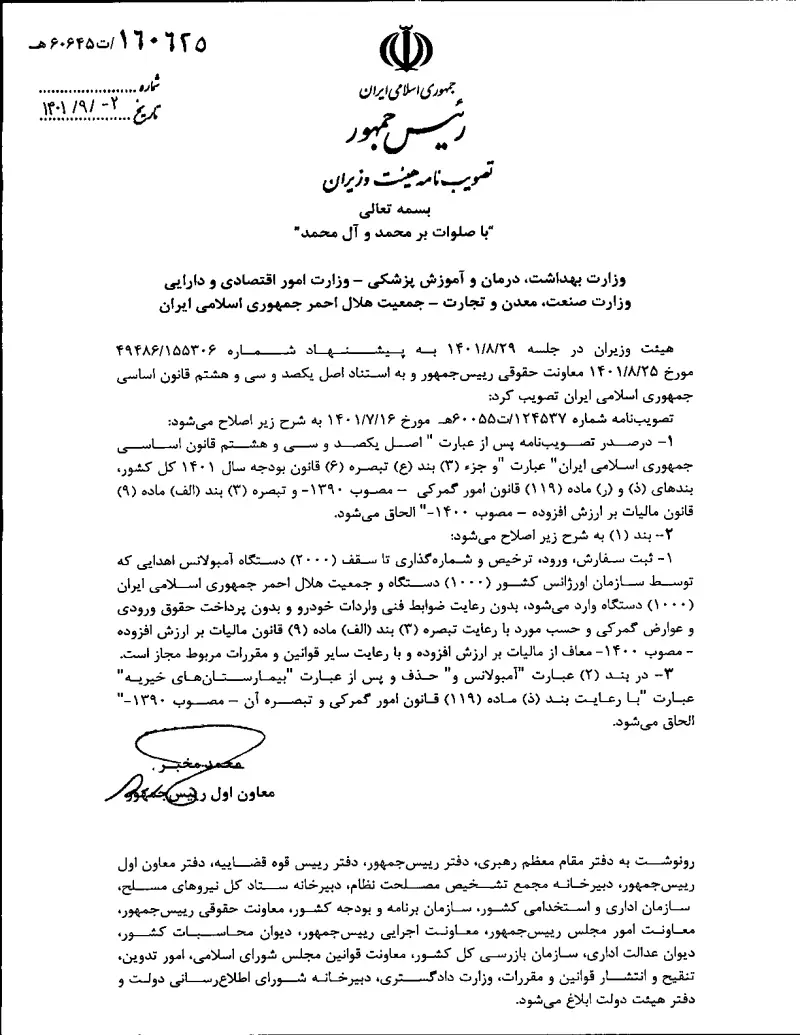 ۱۶۰۶۲۵/ت۶۰۶۴۵هـ
جمهوری اسلامی ایران
شماره
رئیس جمهور
تاریخ ۱۴۰۱/۹/۰۲
تصویب نامه هیئت وزیران
بسمه تعالی
"با صلوات بر محمد و آل محمد"
وزارت بهداشت، درمان و آموزش پزشکی – وزارت امور اقتصادی و دارایی
وزارت صنعت، معدن و تجارت – جمعیت هلال احمر جمهوری اسلامی ایران
هیئت وزیران در جلسه ۱۴۰۱/۸/۲۹ به پیشنهاد شماره ۴۹۴۸۶/۱۵۵۳۰۶
مورخ ۱۴۰۱/۸/۲۵ معاونت حقوقی رییس‌جمهور و به استناد اصل یکصد و سی و هشتم قانون اساسی
جمهوری اسلامی ایران تصویب کرد:
تصویب‌نامه شماره ۱۲۴۵۳۷/ت۶۰۰۵۵هـ مورخ ۱۴۰۱/۷/۱۶ به شرح زیر اصلاح می‌شود:
۱- درصدر تصویب‌نامه پس از عبارت " اصل یکصد و سی و هشتم قانون اساسی
جمهوری اسلامی ایران" عبارت "و جزء (۳) بند (ع) تبصره (۶) قانون بودجه سال ۱۴۰۱ کل کشور،
بندهای (ذ) و (ر) ماده (۱۱۹) قانون امور گمرکی – مصوب ۱۳۹۰- و تبصره (۳) بند (الف) ماده (۹)
قانون مالیات بر ارزش افزوده – مصوب ۱۴۰۰-" الحاق می‌شود.
۲- بند (۱) به شرح زیر اصلاح می‌شود:
۱- ثبت سفارش، ورود، ترخیص و شماره‌گذاری تا سقف (۲۰۰۰) دستگاه آمبولانس اهدایی که
توسط سازمان اورژانس کشور (۱۰۰۰) دستگاه و جمعیت هلال احمر جمهوری اسلامی ایران
(۱۰۰۰) دستگاه وارد می‌شود، بدون رعایت ضوابط فنی واردات خودرو و بدون پرداخت حقوق ورودی
و عوارض گمرکی و حسب مورد با رعایت تبصره (۳) بند (الف) ماده (۹) قانون مالیات بر ارزش افزوده
- مصوب ۱۴۰۰- معاف از مالیات بر ارزش افزوده و با رعایت سایر قوانین و مقررات مربوط مجاز است.
۳- در بند (۲) عبارت "آمبولانس و" حذف و پس از عبارت "بیمارستان‌های خیریه"
عبارت "با رعایت بند (ذ) ماده (۱۱۹) قانون امور گمرکی و تبصره آن – مصوب ۱۳۹۰-"
الحاق می‌شود.
محمد مخبر
معاون اول رییس‌جمهور
رونوشت به دفتر مقام معظم رهبری، دفتر رییس‌جمهور، دفتر رییس قوه قضاییه، دفتر معاون اول
رییس‌جمهور، دبیرخانه مجمع تشخیص مصلحت نظام، دبیرخانه ستاد کل نیروهای مسلح،
سازمان اداری و استخدامی کشور، سازمان برنامه و بودجه کشور، معاونت حقوقی رییس‌جمهور،
معاونت امور مجلس رییس‌جمهور، معاونت اجرایی رییس‌جمهور، دیوان محاسبات کشور،
دیوان عدالت اداری، سازمان بازرسی کل کشور، معاونت قوانین مجلس شورای اسلامی، امور تدوین،
تنقیح و انتشار قوانین و مقررات، وزارت دادگستری، دبیرخانه شورای اطلاع‌رسانی دولت و
دفتر هیئت دولت ابلاغ می‌شود.